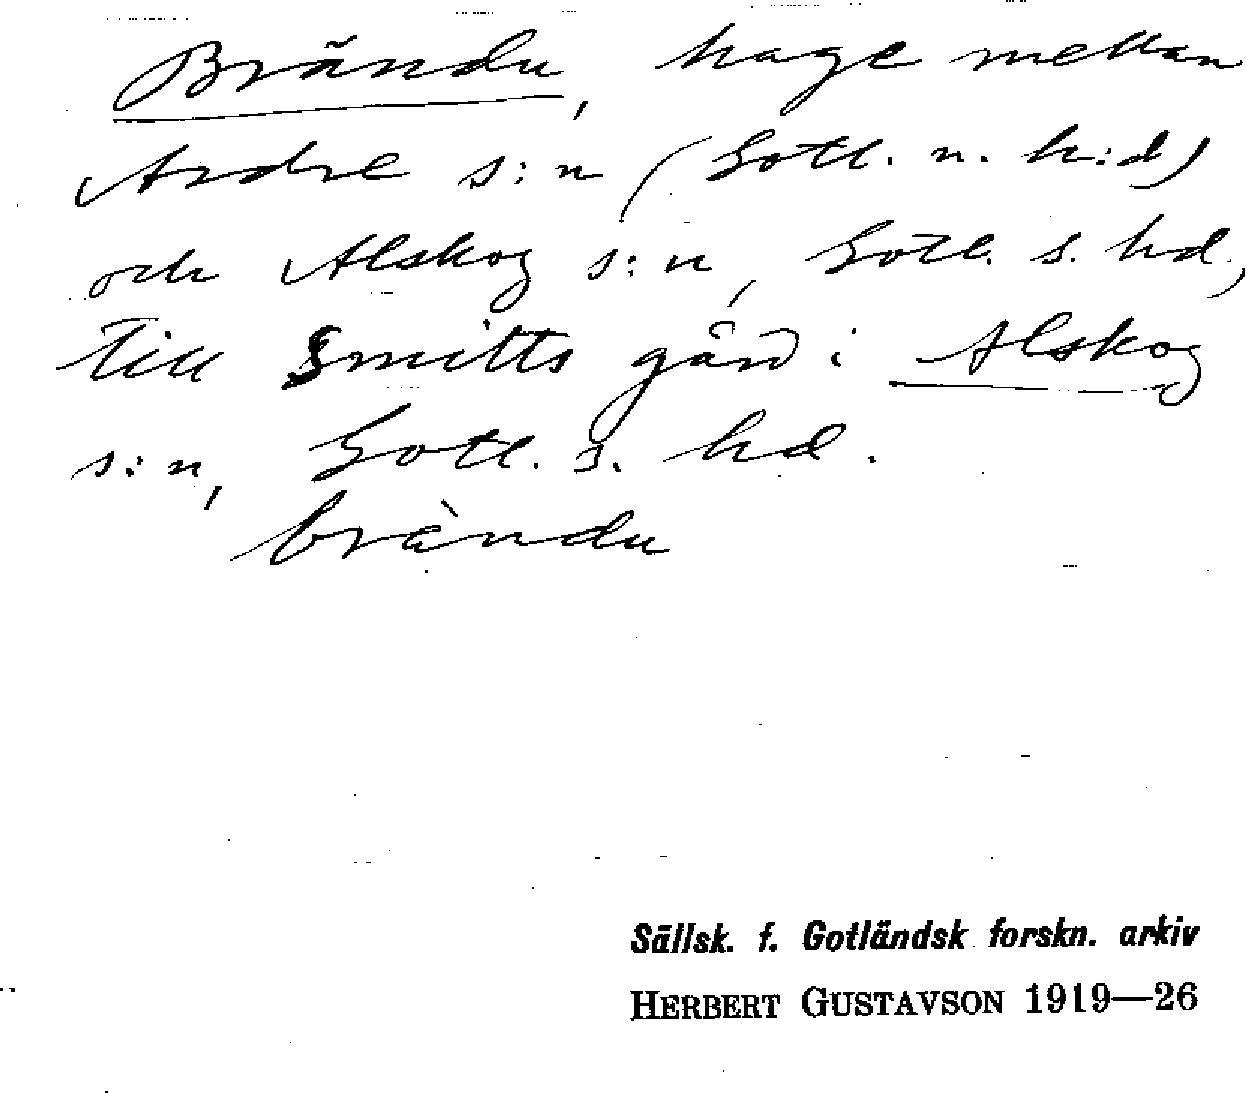 Brändu, hage mellan
Ardre s:n (Gotl. n. h:d)
och Alskog s:n, Gotl. s. hd,
till Smitts gård i Alskog
s:n, Gotl. s. hd.
bràndu
Sällsk. f. Gotländsk forskn. arkiv
HERBERT GUSTAVSON 1919—26